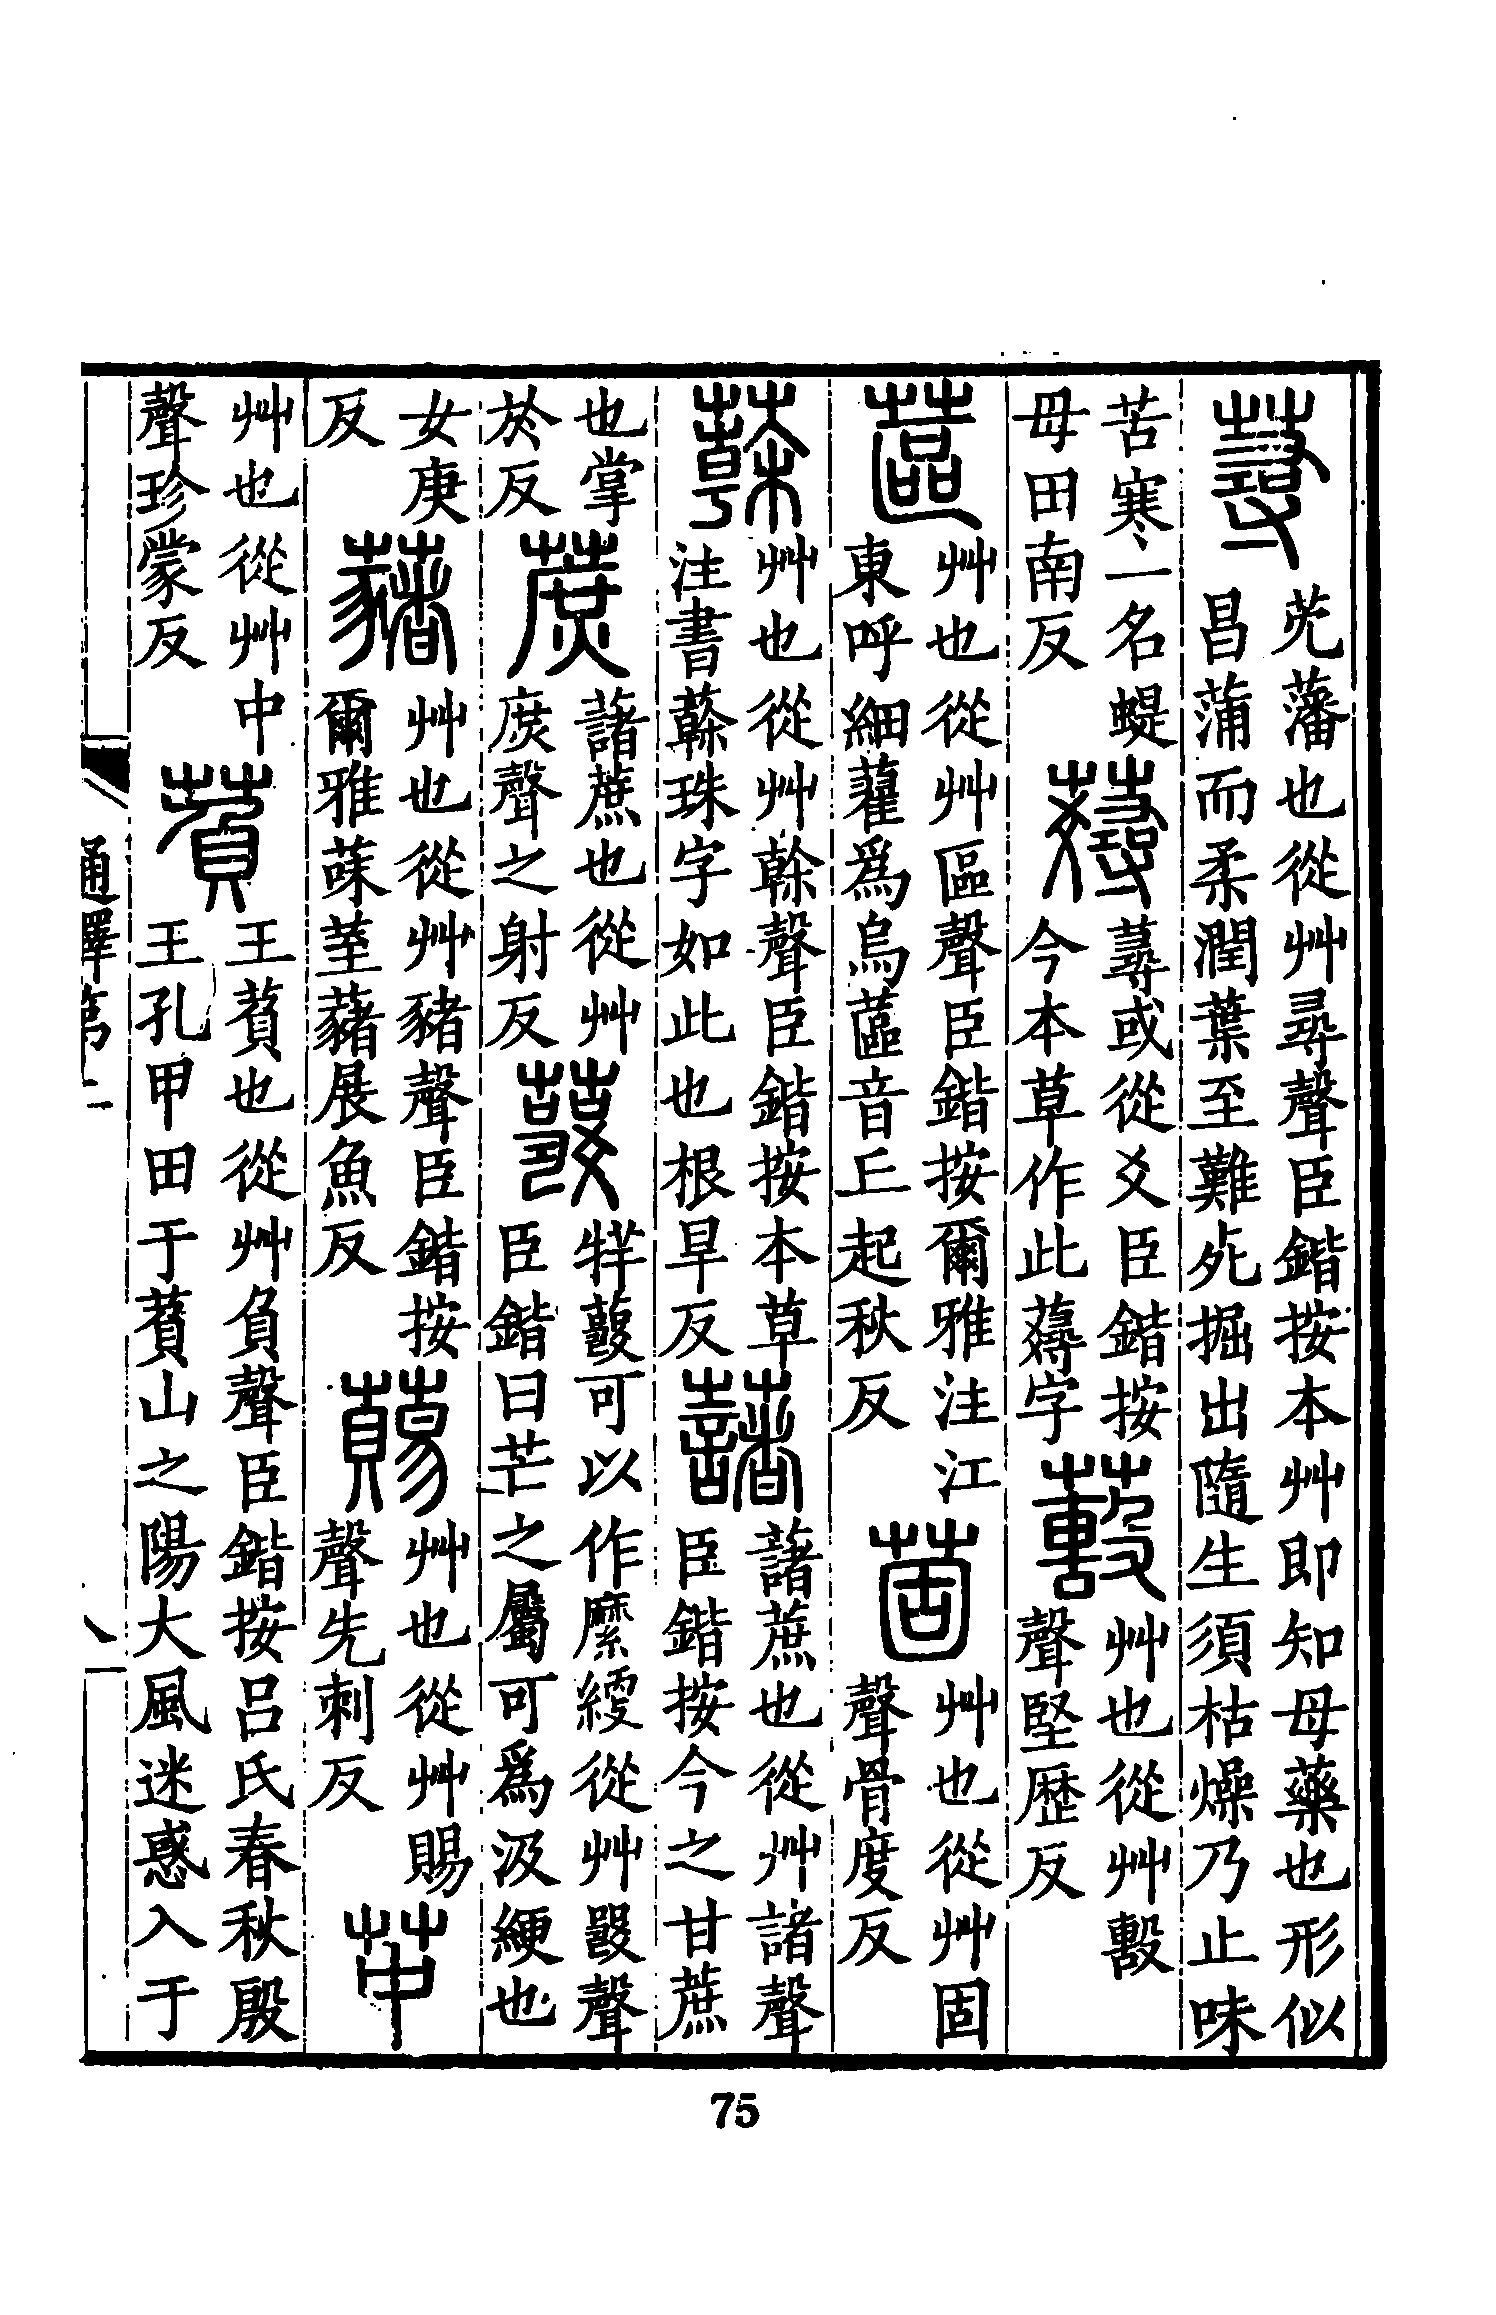 蕁
芫藩也從艸尋聲臣鍇按本艸即知母藥也形似
昌蒲而柔潤葉至難死掘出隨生須枯燥乃止味
苦寒一名蝭
母田南反
𧃫
蕁或從爻臣鍇按
今本草作此𧃫字
䕍
艸也從艸毄
聲堅歷反
蓲
艸也從艸區聲臣鍇按爾雅注江
東呼細雚爲烏蓲音丘起秋反
䓢
艸也從艸固
聲骨度反
𦼮
艸也從艸榦聲臣鍇按本草
注書𦼮珠字如此也根旱反
藷
藷蔗也從艸諸聲
臣鍇按今之甘蔗
也掌
於反
蔗
藷蔗也從艸
庶聲之射反
䕲
牂䕲可以作縻綆從艸𤕦聲
臣鍇曰芒之屬可爲汲綆也
女庚
反
藸
艸也從艸豬聲臣鍇按
爾雅菋荎藸展魚反
䔮
艸也從艸賜
聲先刺反
𦬕
艸也從艸中
聲珍蒙反
萯
王萯也從艸負聲臣鍇按呂氏春秋殷
王孔甲田于萯山之陽大風迷惑入于
通釋第二
八
75